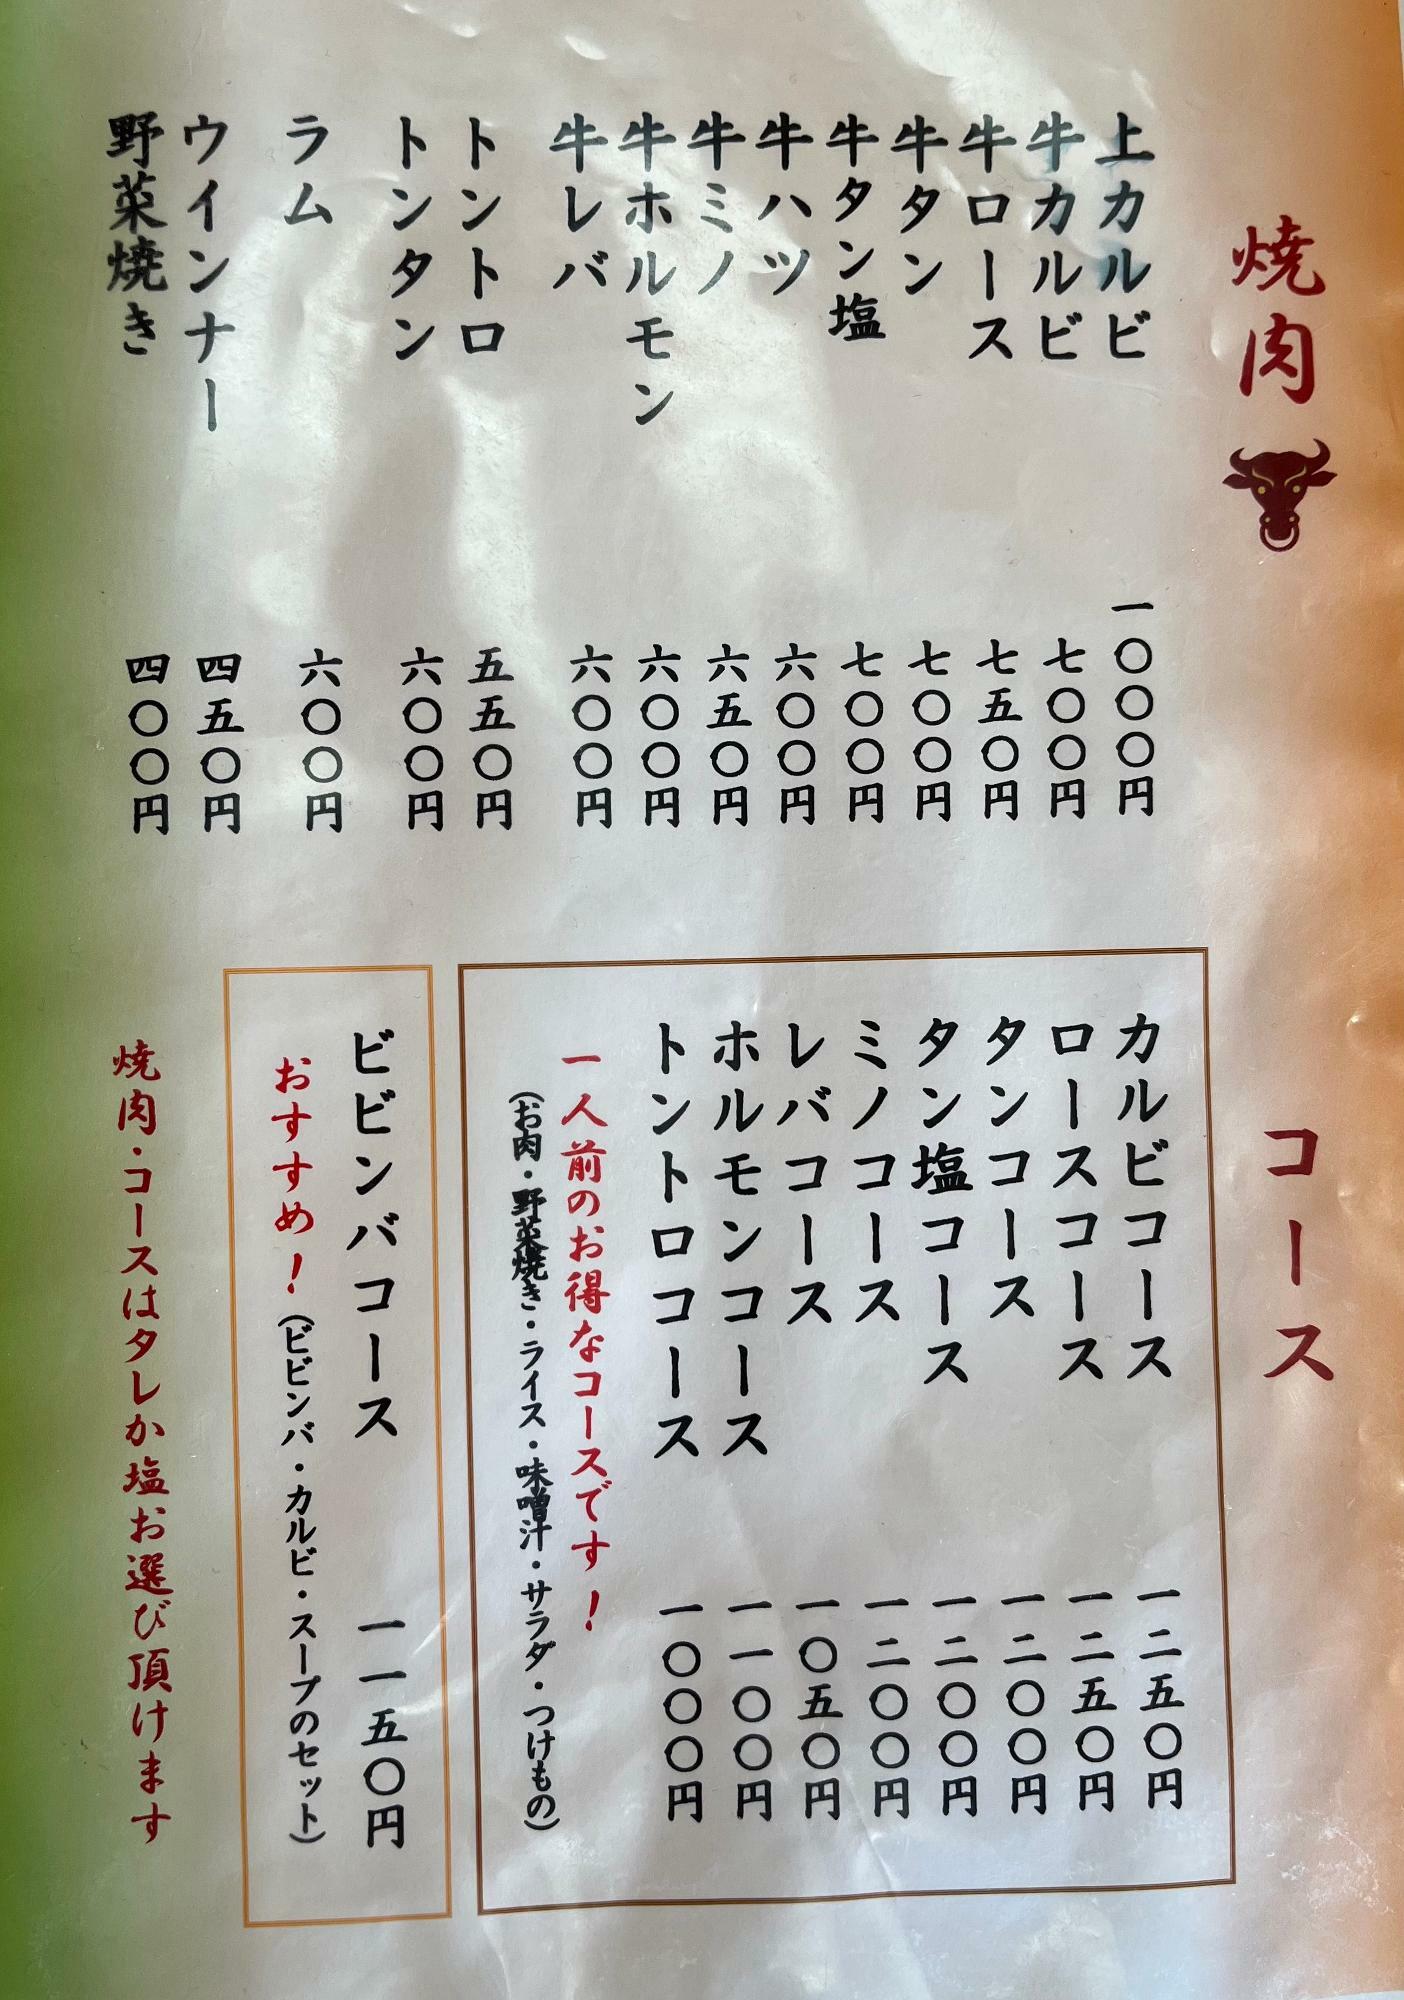 焼肉
上カルビ 一〇〇〇円
牛カルビ 七〇〇円
牛ロース 七五〇円
牛タン 七〇〇円
牛タン塩 七〇〇円
牛ハツ 六〇〇円
牛ミノ 六五〇円
牛ホルモン 六〇〇円
牛レバ 六〇〇円
トントロ 五五〇円
トンタン 六〇〇円
ラム 六〇〇円
ウインナー 四五〇円
野菜焼き 四〇〇円
コース
カルビコース 一二五〇円
ロースコース 一二五〇円
タンコース 一二〇〇円
タン塩コース 一二〇〇円
ミノコース 一二〇〇円
レバコース 一〇五〇円
ホルモンコース 一一〇〇円
トントロコース 一〇〇〇円
一人前のお得なコースです！
(お肉・野菜焼き・ライス・味噌汁・サラダ・つけもの)
ビビンバコース 一一五〇円
おすすめ！(ビビンバ・カルビ・スープのセット)
焼肉・コースはタレか塩お選び頂けます